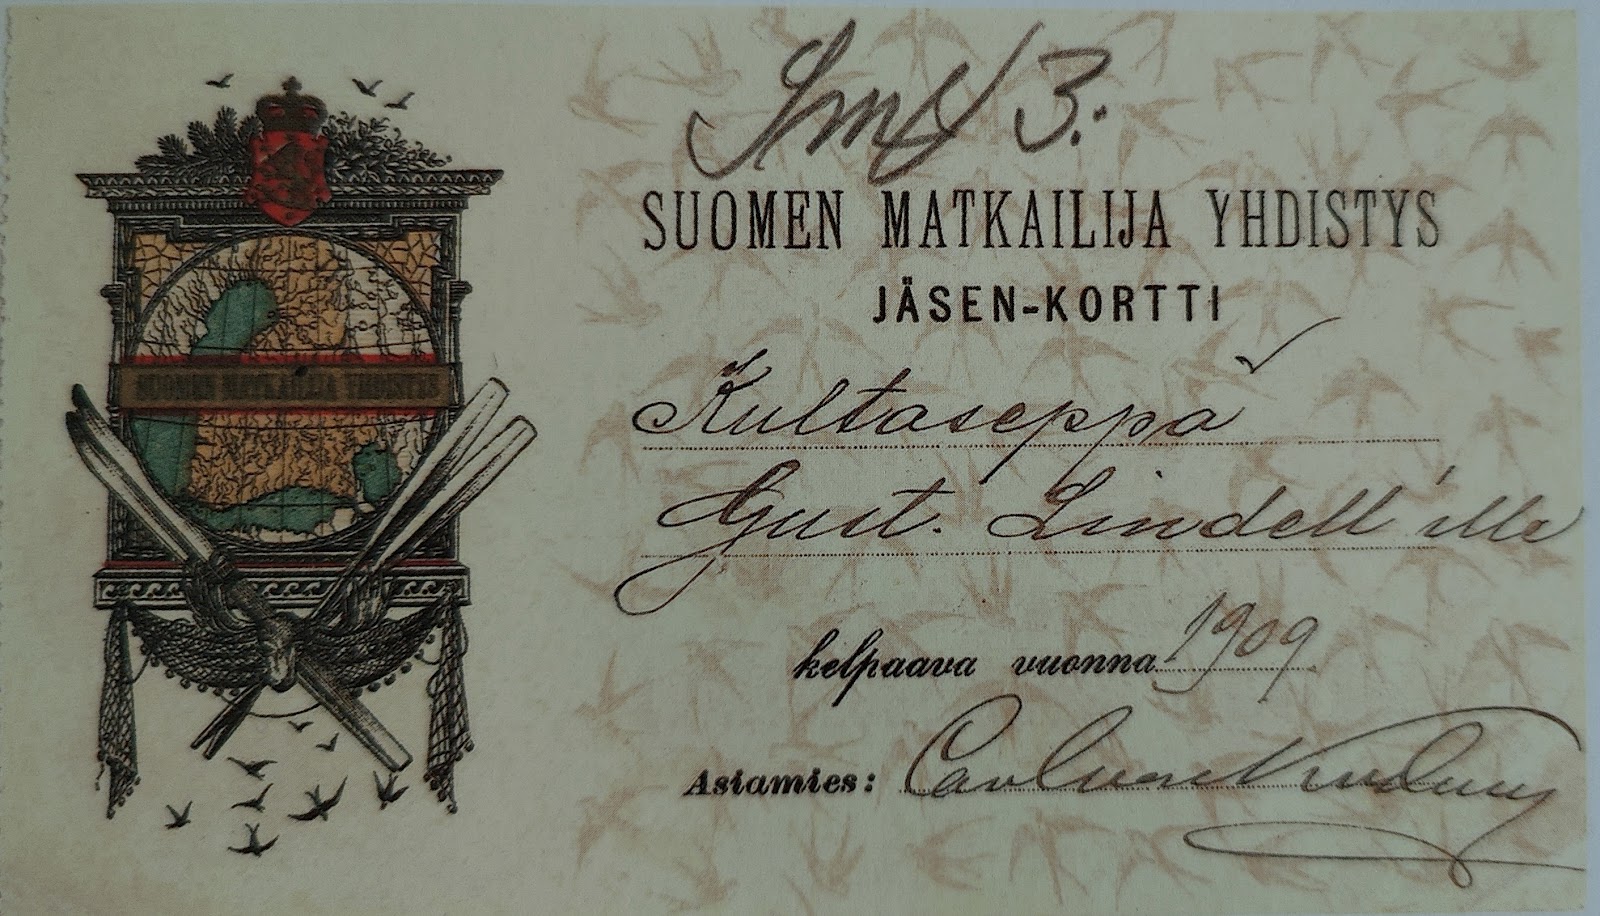 Smk 3:-
SUOMEN MATKAILIJA YHDISTYS
JÄSEN-KORTTI
SUOMEN MATKAILIJA YHDISTYS
Kultaseppä
Gust. Lindell'ille
kelpaava vuonna 1909
Asiamies: